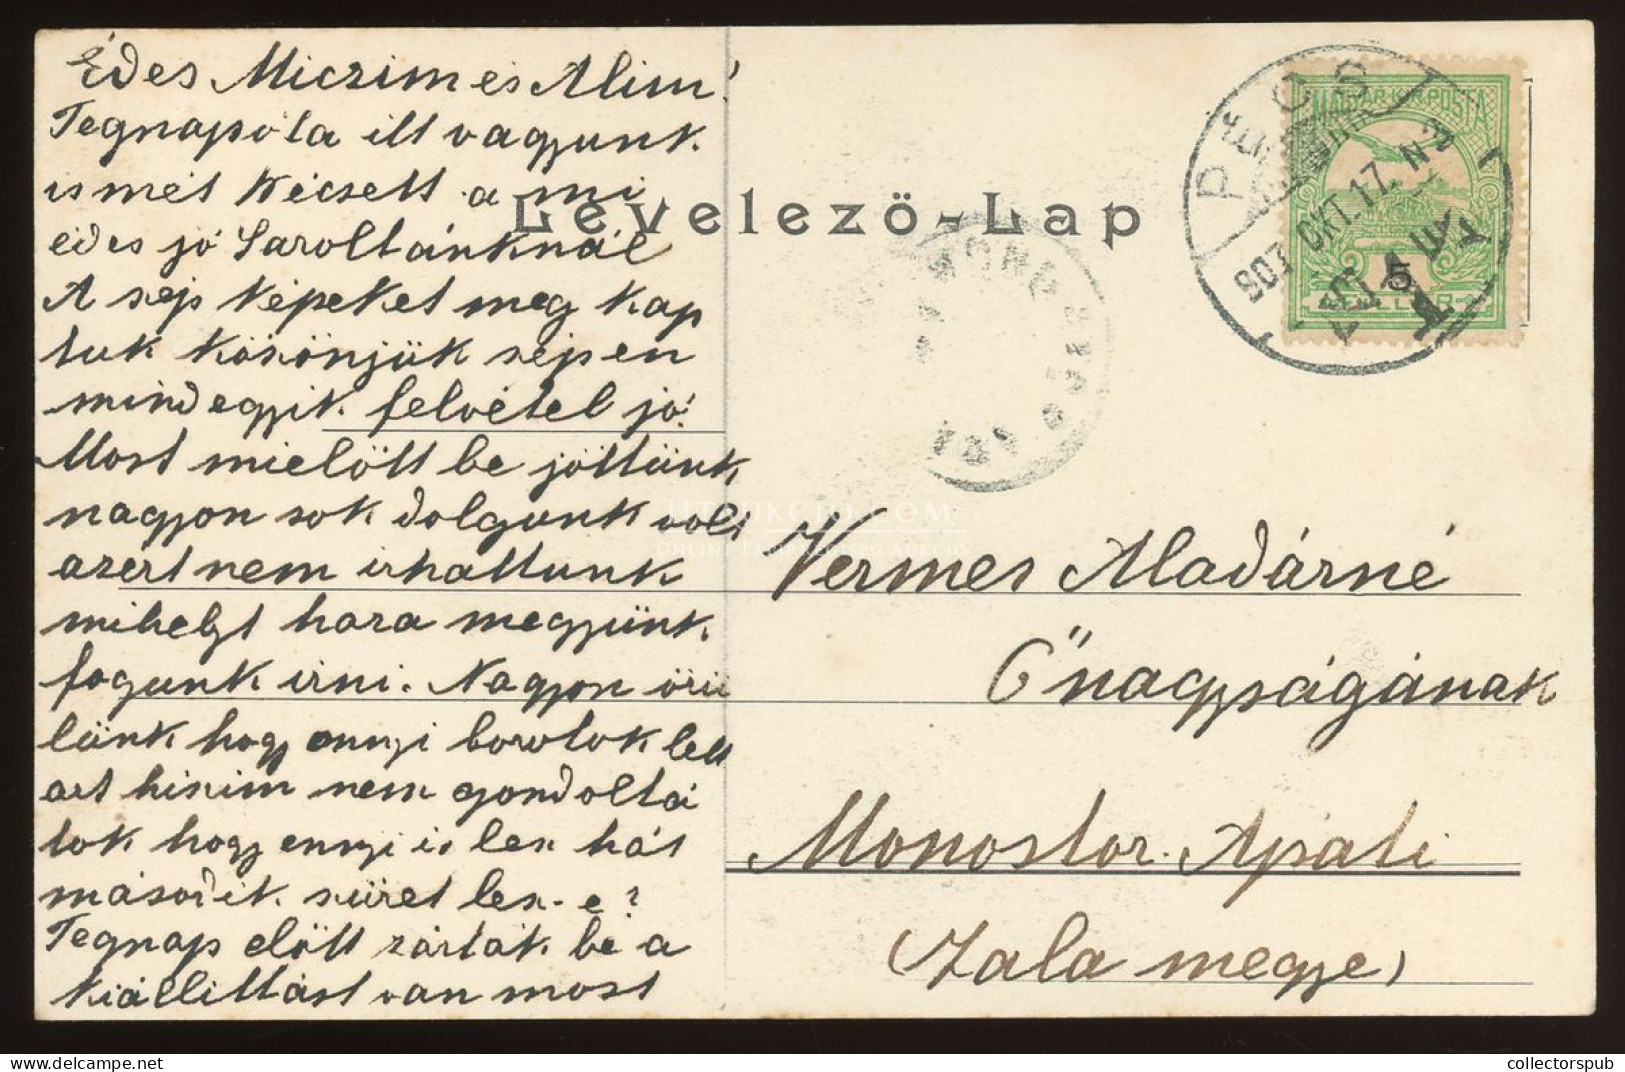 Édes Miczim és Alim!
Tegnapóta itt vagyunk
ismét Kécsett a mi
édes jó Saroltánknál
A szép képeket meg kap
tuk köszönjük szépen
mindegyik felvétel jó!
Most mielőtt be jöttünk
nagyon sok dolgunk volt
azért nem irhattunk
mihelyt haza megyünk
fogunk irni. Nagyon örü
lünk hogy ennyi borotok lett
azt hiszim nem gondoltá
tok hogy ennyi is lesz hát
második szüret lesz-e?
Tegnap előtt zárták be a
kiállittást van most
Levelező-Lap
PÉCS
907 OKT. 17. N 7
MAGYAR KIR. POSTA
5
Vermes Aladárné
Őnagyságának
Monostor. Apáti
(Zala megye)
HUNGAUKCIO.COM
collectorspub